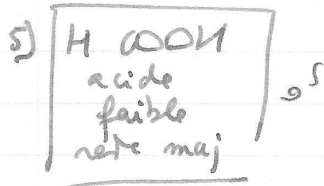 5) H COOH
acide
faible
reste maj